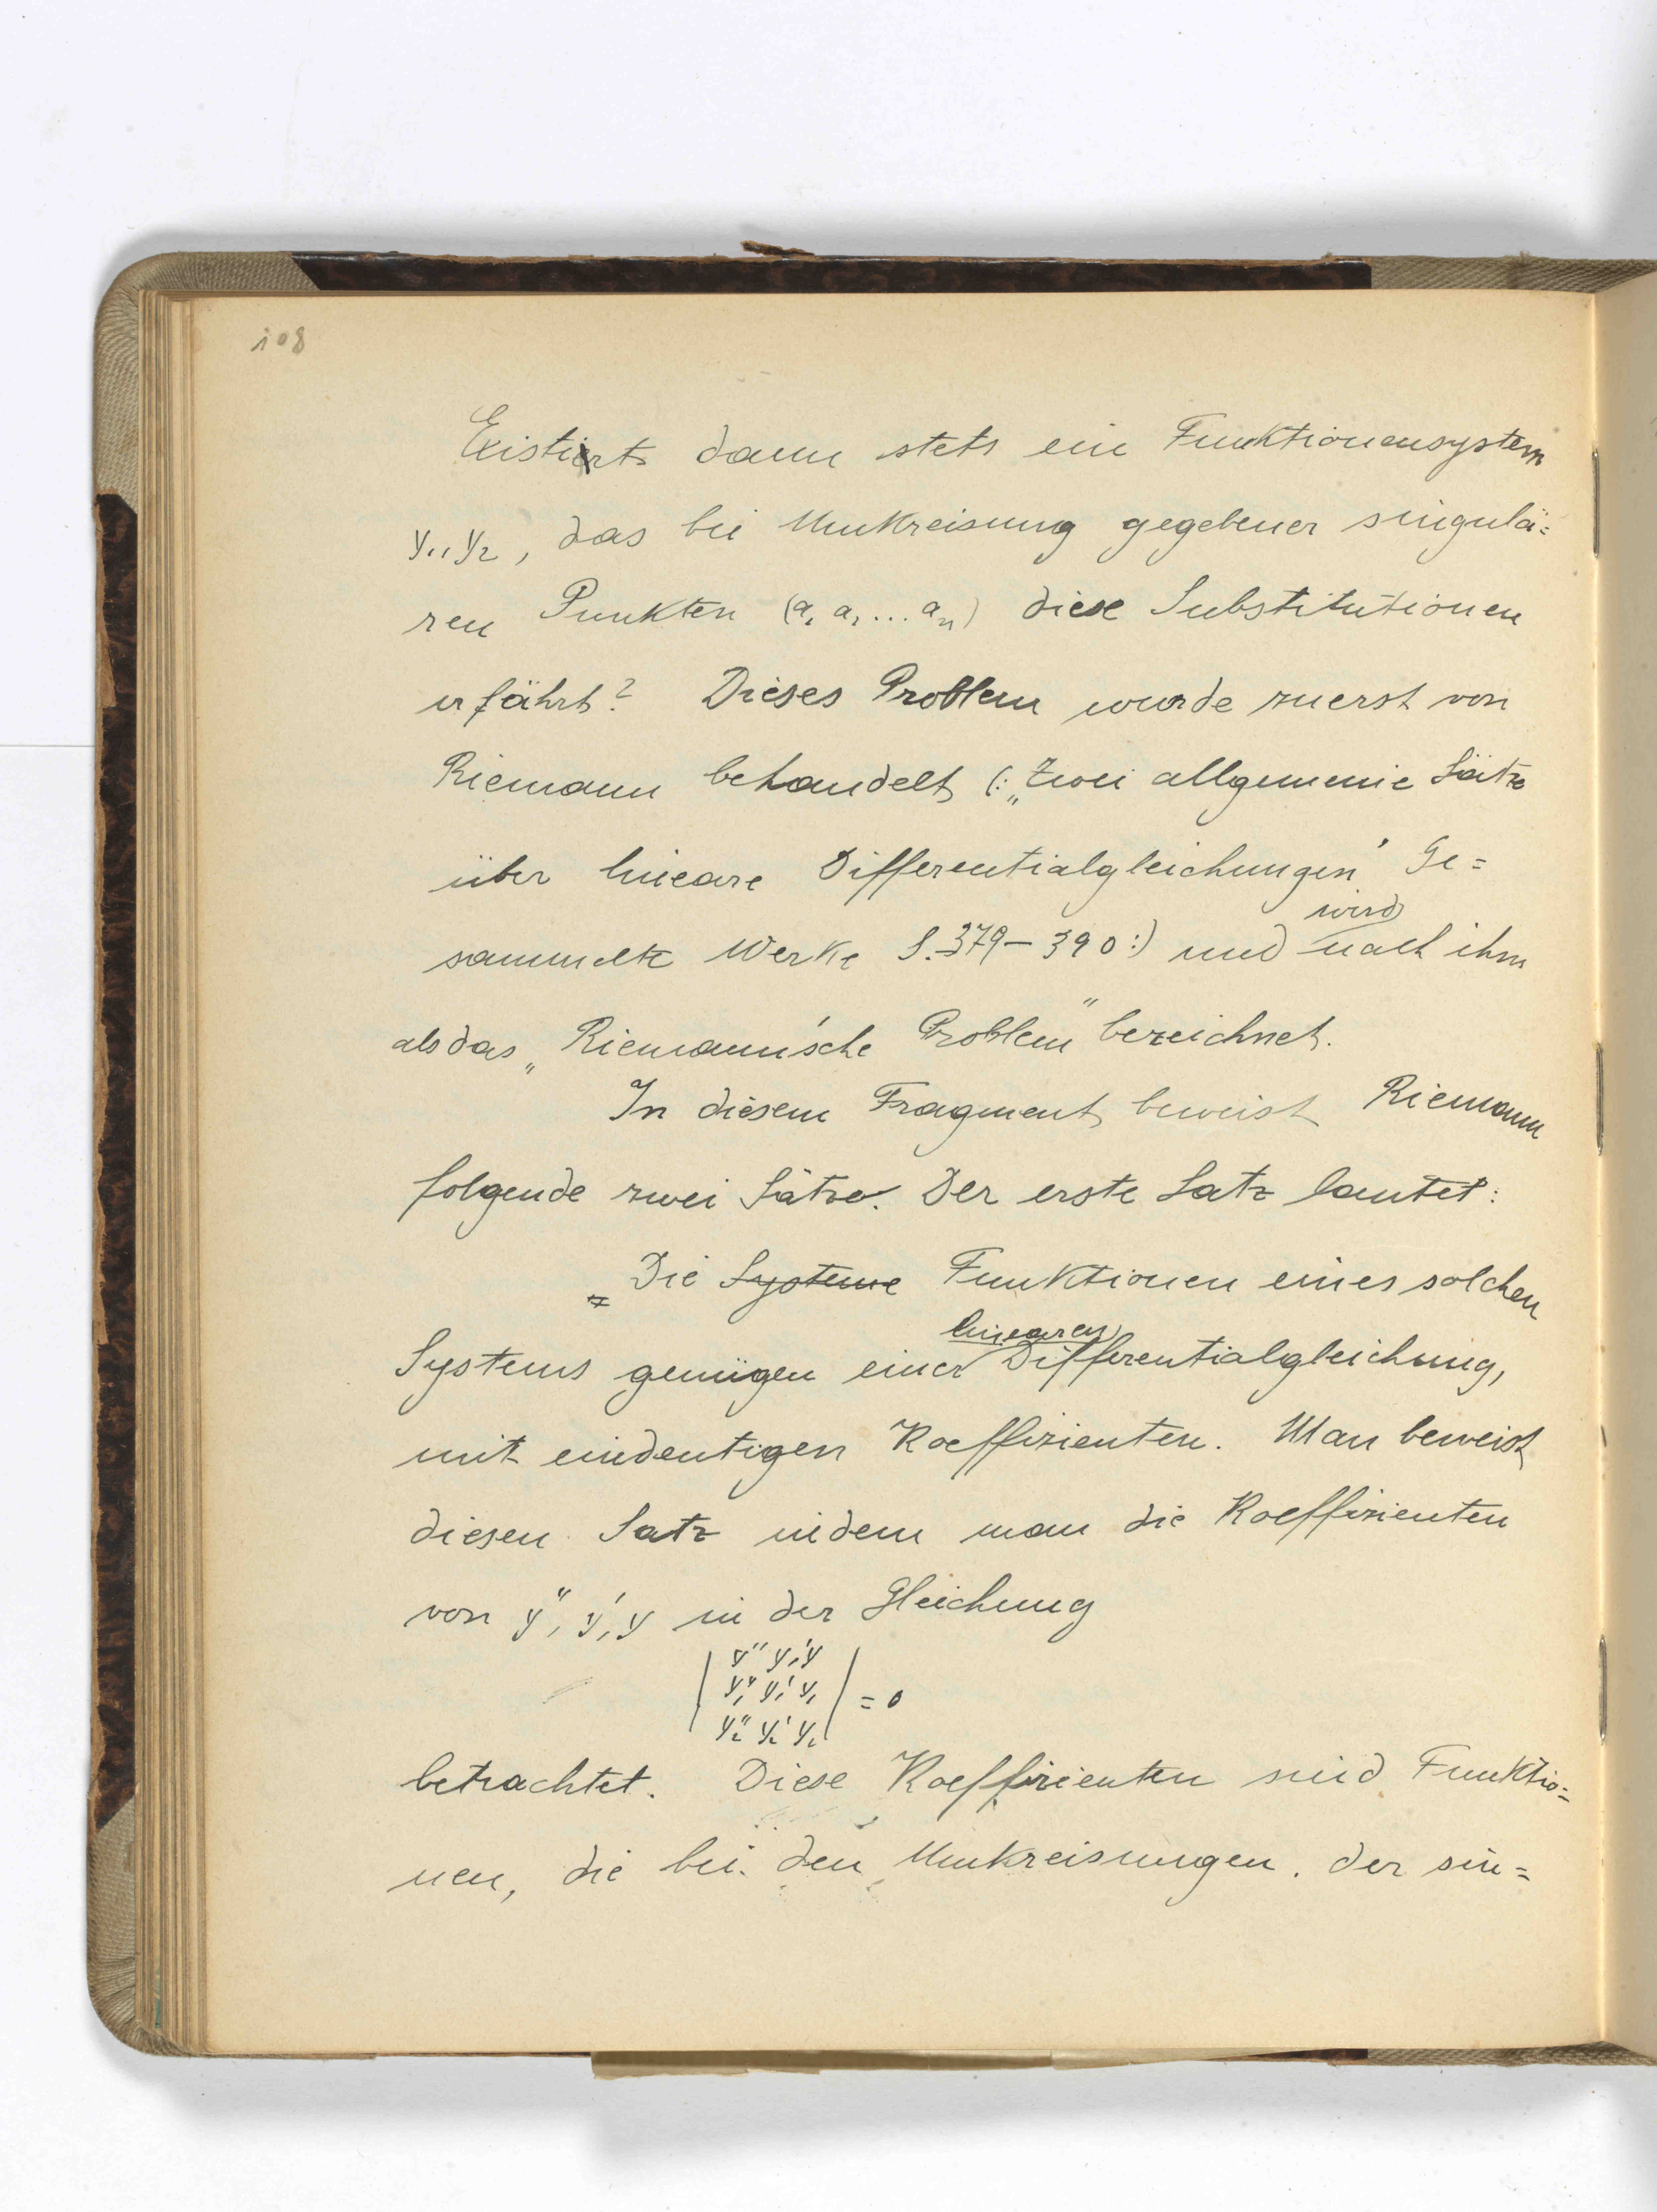 108
Existiert dann stets ein Funktionensystem
y₁, y₂, das bei Umkreisung gegebener singulä=
ren Punkten (a₁ a₂ ... aₙ) diese Substitutionen
erfährt? Dieses Problem wurde zuerst von
Riemann behandelt (: „Zwei allgemeine Sätze
über lineare Differentialgleichungen" Ge=
sammelte Werke S. 379–390 :) und wird nach ihm
als das „Riemann'sche Problem" bezeichnet.
In diesem Fragment beweist Riemann
folgende zwei Sätze. Der erste Satz lautet:
„Die Systeme Funktionen eines solchen
Systems genügen einer linearen Differentialgleichung,
mit eindeutigen Koeffizienten. Man beweist
diesen Satz indem man die Koeffizienten
von y'', y', y in der Gleichung
| y'' y' y |
| y₁'' y₁' y₁ | = 0
| y₂'' y₂' y₂ |
betrachtet. Diese Koeffizienten sind Funktio=
nen, die bei den Umkreisungen der sin=